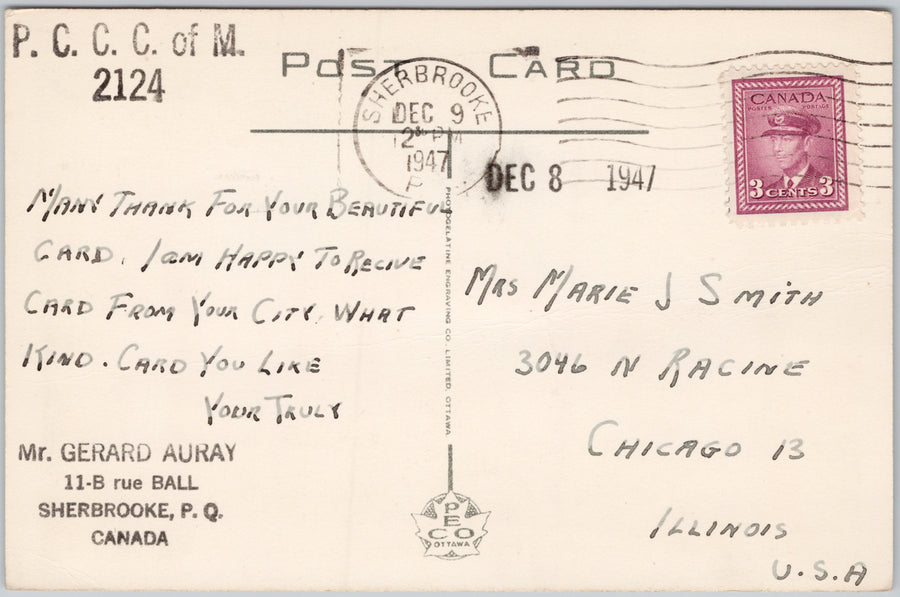 P. C. C. C. of M.
2124
POST CARD
SHERBROOKE
DEC 9
PM
1947
P
DEC 8 1947
CANADA
POSTES POSTAGE
3 CENTS 3
MANY THANK FOR YOUR BEAUTIFUL
CARD. I am HAPPY TO RECIVE
CARD FROM YOUR CITY. WHAT
KIND. CARD YOU LIKE
YOUR TRULY
Mr. GERARD AURAY
11-B rue BALL
SHERBROOKE, P. Q.
CANADA
PHOTOGELATINE ENGRAVING CO. LIMITED, OTTAWA
PECO
OTTAWA
MRS MARIE J SMITH
3046 N RACINE
CHICAGO 13
ILLINOIS
U.S.A